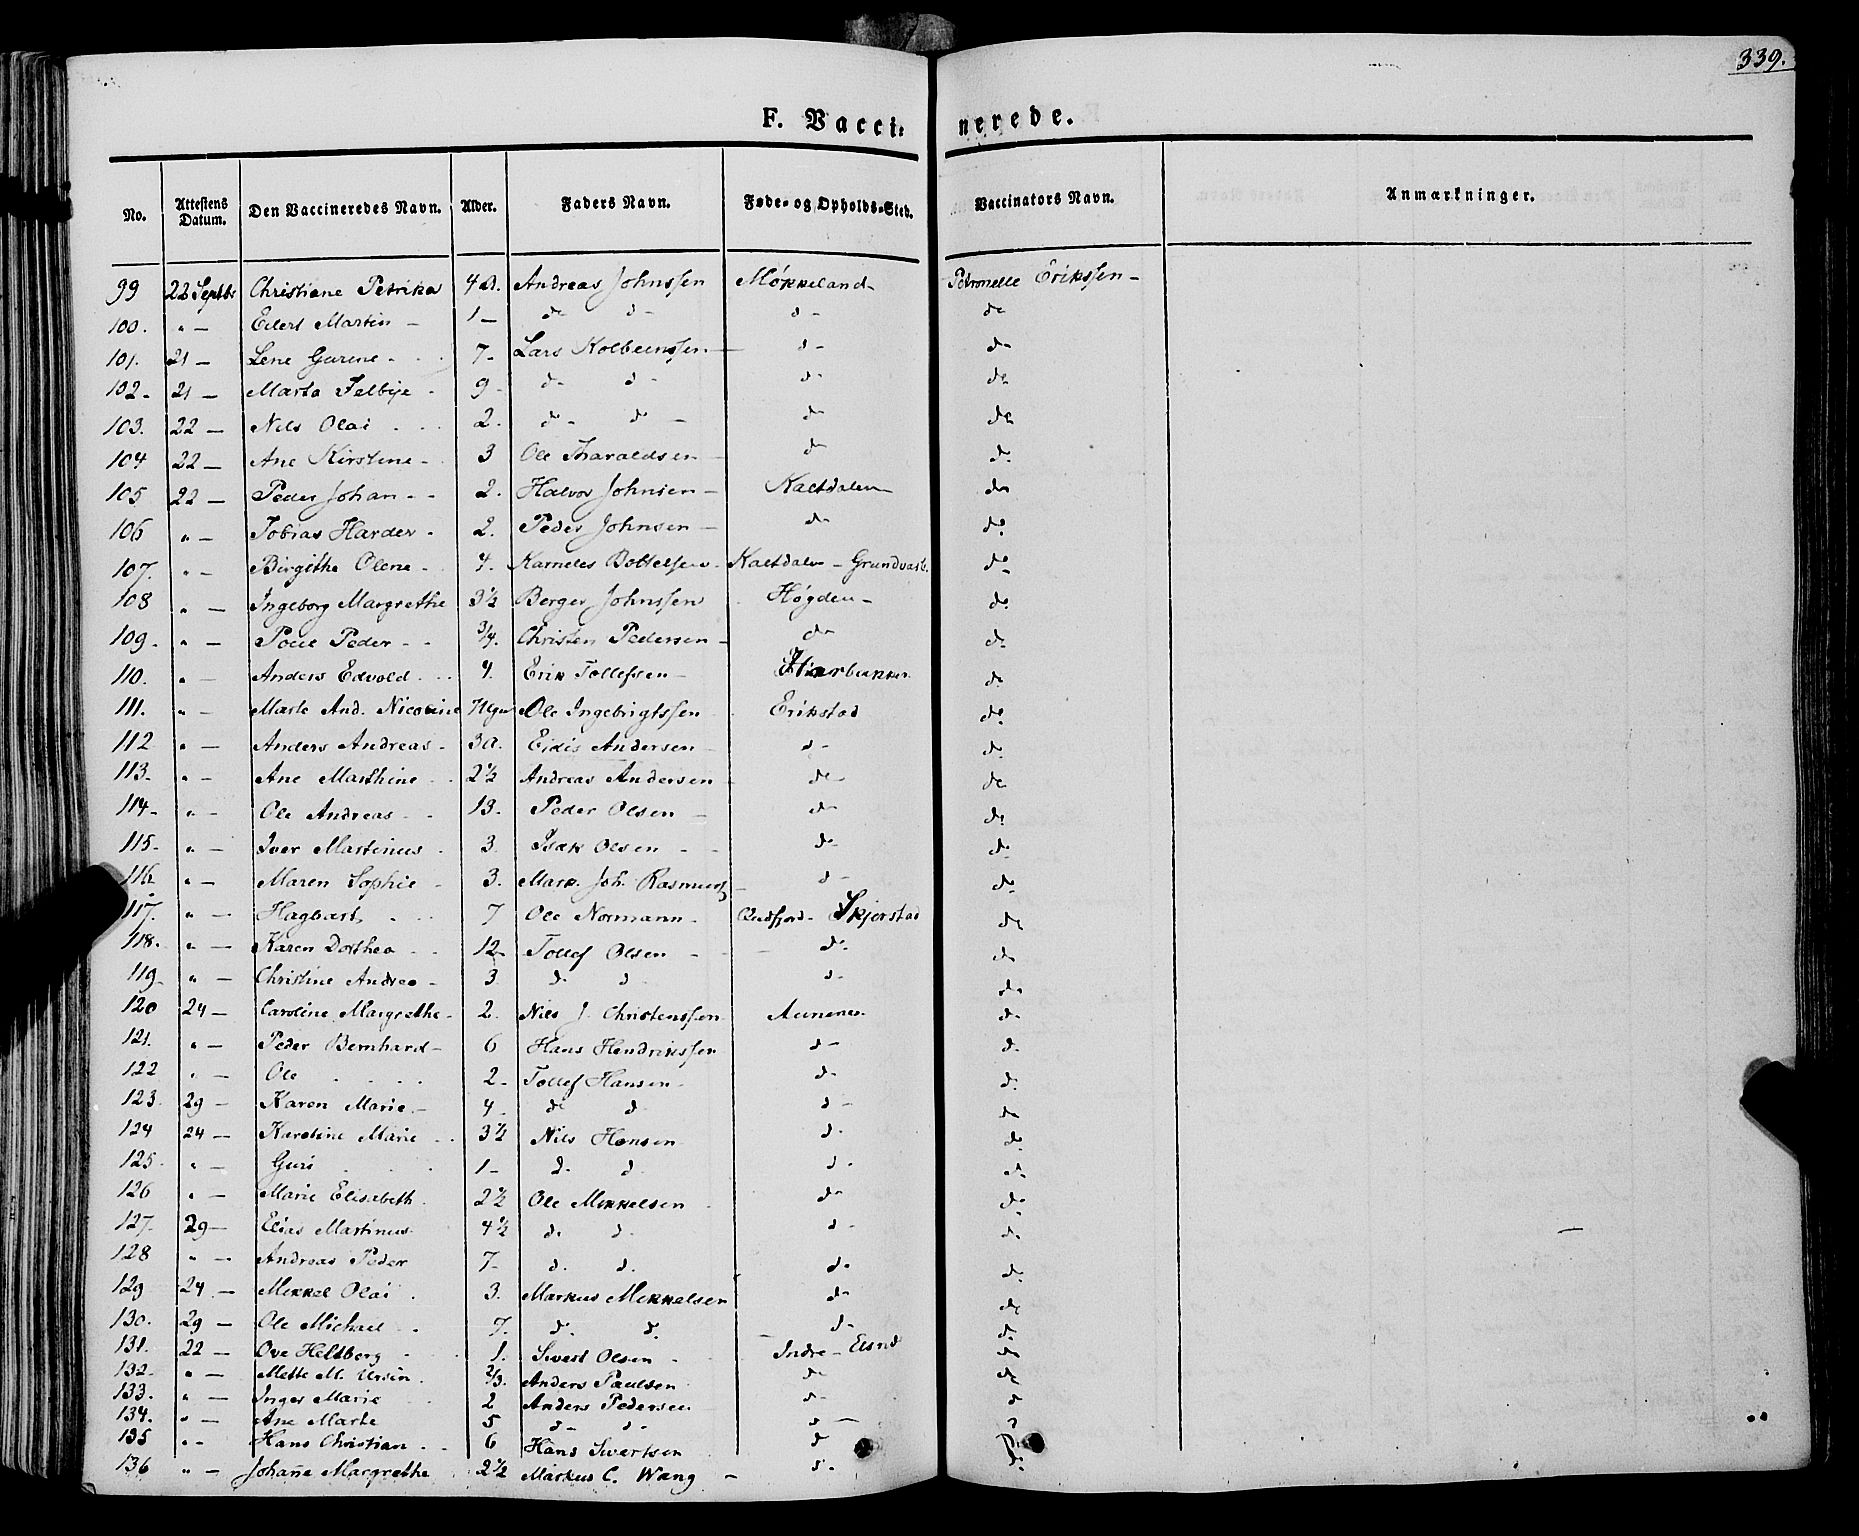 339.
F. Vacci- nerede.
No. Attestens Datum. Den Vaccineredes Navn. Alder. Faders Navn. Føde- og Opholds-Sted. Vaccinators Navn. Anmærkninger.
99 22 Septbr Christiane Petrika 4 a. Andreas Johnssen Møkkeland Petronelle Erikssen
100. " — Edert Martin 1 — do do do do
101. 21 — Lene Gurine 7 Lars Kolbeenssen do do
102. 21 — Marta Felbye 9 do do do do
103. 22 — Nils Olai 2. do do do do
104 22 — Ane Kirstine 3 Ole Tharaldsen do do
105 22 — Peder Johan 2. Halvor Johnsen Kaltdalen do
106 " — Tobias Harder 2. Peder Johnsen do do
107. " — Birgithe Olene 4. Karneles Bottelsen Kaltdalen - Grundvasb. do
108 " — Ingeborg Margrethe 3½ Berger Johnssen Høgden do
109. " — Poul Peder 3/4. Christen Pedersen do do
110. " — Anders Edvold 4. Erik Tollefssen do
111. " — Marte And. Nicoline Ole Ingebrigtssen Erikstad do
112 " — Anders Andreas 3 a. Eidis Andersen do do
113. " — Ane Marthine 2½ Andreas Andersen do do
114. " — Ole Andreas 13. Peder Olsen do do
115. " — Iver Martinus 3. Isak Olsen do do
116. " — Maren Sophie 3. Mark. Joh. Rasmuss do do
117. " — Hagbart 7 Ole Normann Qvedfjord - Skjerstad do
118. " — Karen Dorthea 12 Tollef Olsen do do
119. " — Christine Andrea 3 do do do do
120 24 — Caroline Margrethe 2. Nils J. Christenssen Aunene do
121. " — Peder Bernhard 6 Hans Hendrikssen do do
122 " — Ole 2 Tollef Hansen do do
123. 29 — Karen Marie 4 do do do do
124 24 — Karoline Marie 3½ Nils Hansen do do
125. " — Guri 1 — do do do do
126 " — Marie Elisabeth 2½ Ole Mikkelsen do do
127. 29 — Elias Martinus 4½ do do do do
128 " — Andreas Peder 7 do do do do
129 24 — Mikkel Olai 3. Markus Mikkelsen do do
130. 29 — Ole Michael 7. do do do do
131. 22 — Ove Heltberg 1. Sivert Olsen Indre - do
132. " — Mette M. Ursin 2/3. Anders Paulsen do do
133. " — Inger Marie 2 Anders Pedersen do do
134. " — Ane Marte 5 do do do do
135 " — Hans Christian 6 Hans Sivertsen do do
136 " — Johañe Margrethe 2½ Markus C. Wang do do